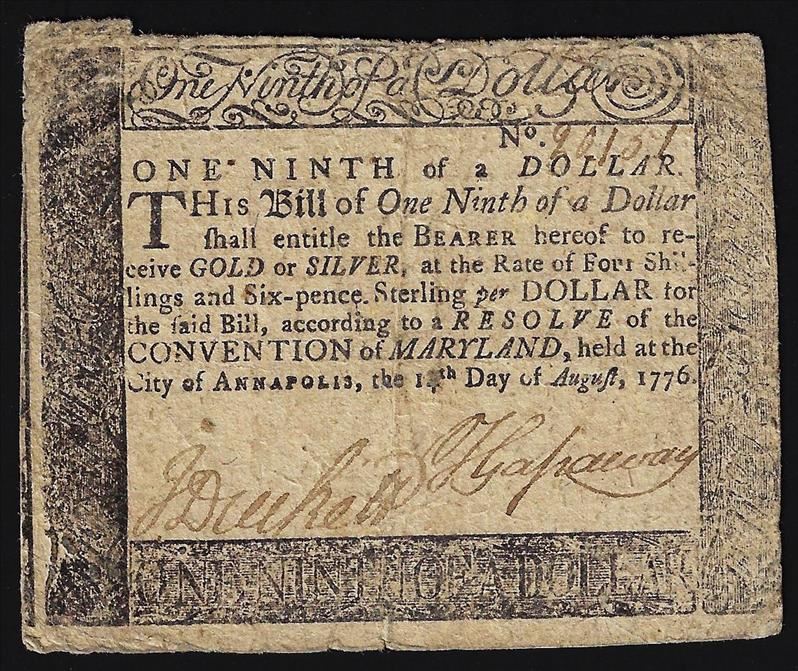 One Ninth of a Dollar
No. 20151
ONE NINTH of a DOLLAR.
THis Bill of One Ninth of a Dollar
ſhall entitle the BEARER hereof to re-
ceive GOLD or SILVER, at the Rate of Four Shil-
lings and Six-pence Sterling per DOLLAR for
the ſaid Bill, according to a RESOLVE of the
CONVENTION of MARYLAND, held at the
City of ANNAPOLIS, the 14th Day of Auguſt, 1776.
J Duckett T Harwood
ONE NINTH OF A DOLLAR